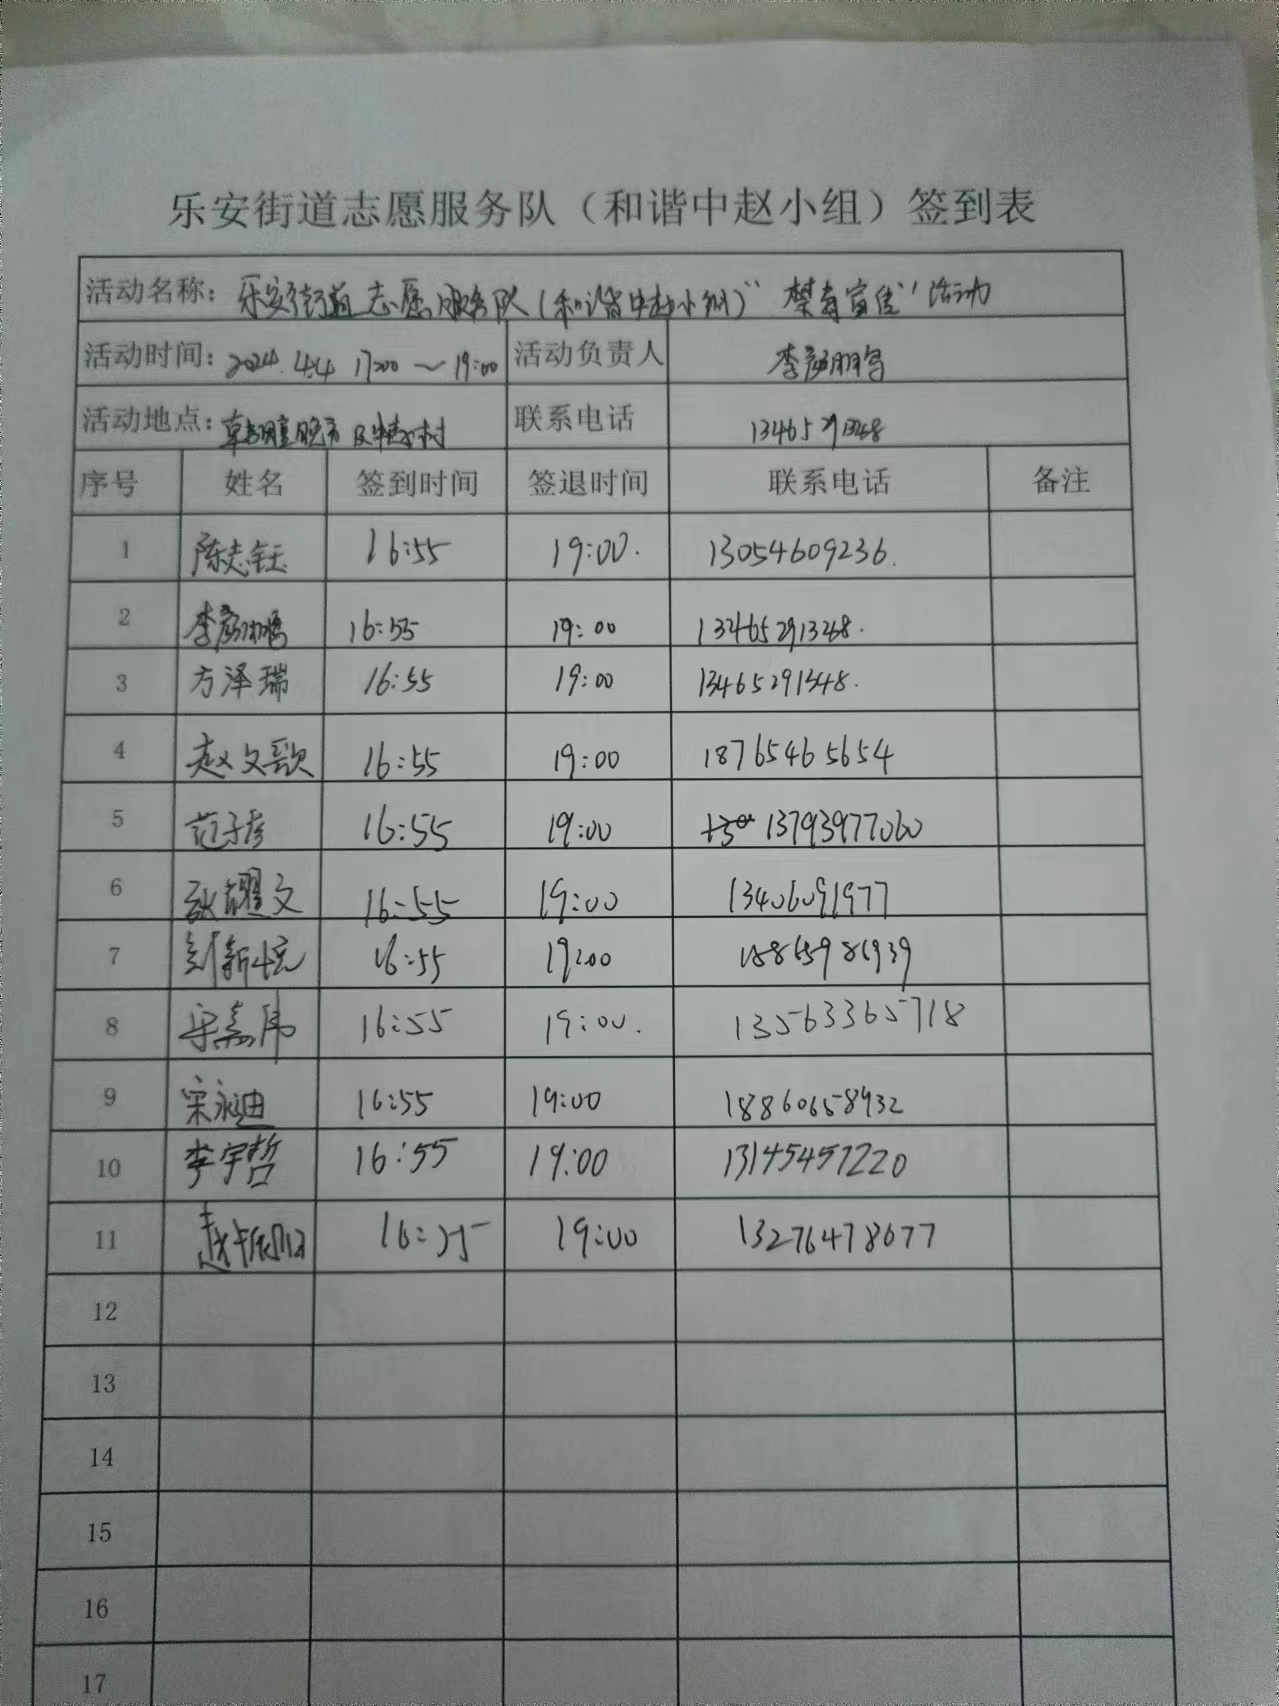 乐安街道志愿服务队（和谐中赵小组）签到表
活动名称：乐安街道志愿服务队（和谐中赵小组）“禁毒宣传”活动
活动时间：2024.4.4 17:00～19:00 活动负责人 李彦鹏
活动地点： 晚市及中赵村 联系电话 13465291348
序号 姓名 签到时间 签退时间 联系电话 备注
1 陈志钰 16:55 19:00. 13054609236.
2 李彦鹏 16:55 19:00 13465291348.
3 方泽瑞 16:55 19:00 13465291348.
4 赵文歌 16:55 19:00 18765465654
5 范子彦 16:55 19:00 13793977060
6 张耀文 16:55 19:00 13406091977
7 16:55 19:00
8 宋嘉伟 16:55 19:00. 13563365718
9 宋永迪 16:55 19:00 18860658932
10 李宇哲 16:55 19:00 13145457220
11 赵振 19:00 13276478677
12
13
14
15
16
17